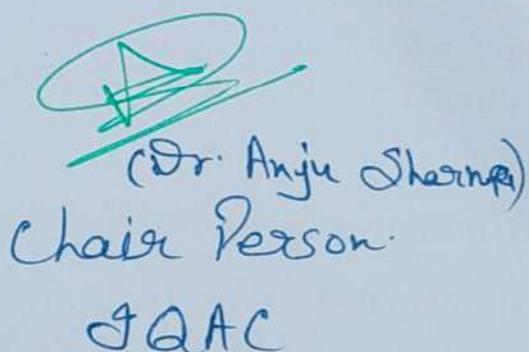 (Dr. Anju Sharma)
Chair Person.
IQAC